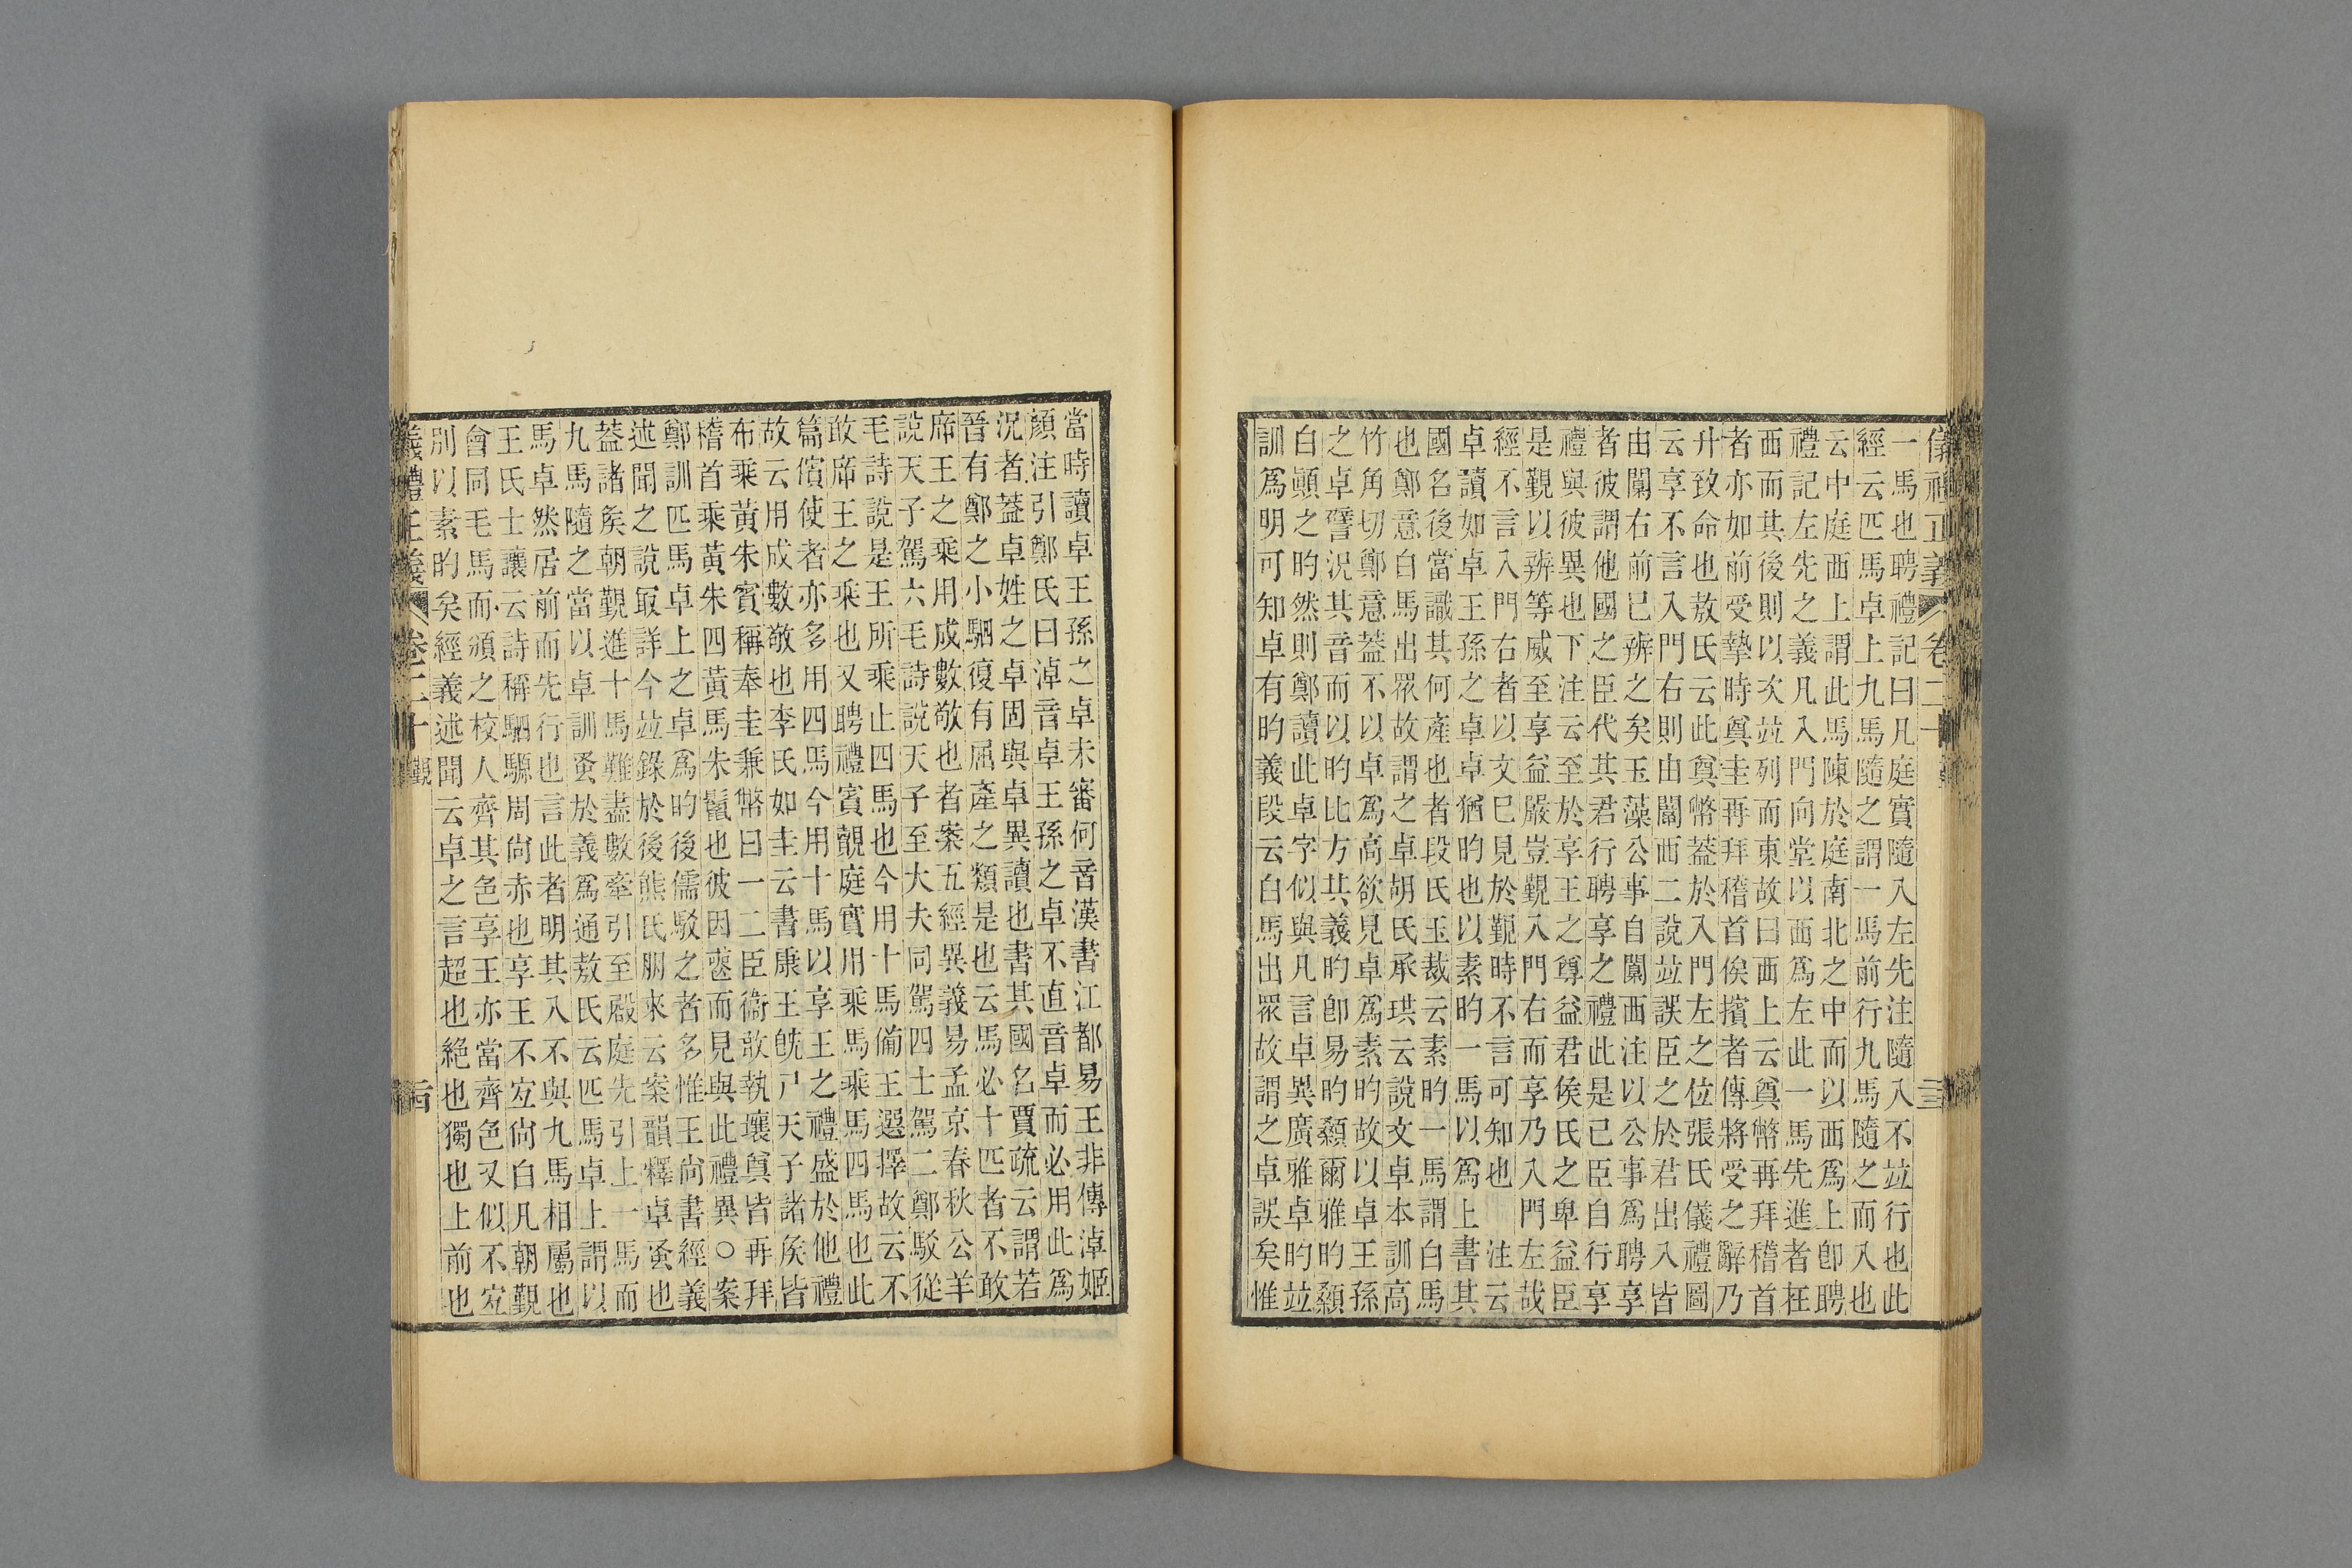 儀禮正義 卷二十
一馬也聘禮記曰凡庭實隨入左先注隨入不竝行也此
經云匹馬卓上九馬隨之謂一馬前行九馬隨之而入也
云中庭西上謂此馬陳於庭南北之中而以西爲上卽聘
禮記左先之義凡入門向堂以西爲左此一馬先進者在
西而其後則以次竝列而東故曰西上云奠幣再拜稽首
者亦如前受摯時奠圭再拜稽首俟擯者傳將受之辭乃
升致命也敖氏云此奠幣葢於入門左之位張氏儀禮圖
云享不言入門右則由闑西二說竝誤臣之於君出入皆
由闑右前已辨之矣玉藻公事自闑西注以公事爲聘享
者彼謂他國之臣代其君行聘享之禮此是已臣自行享
禮與彼異也下注云至於享王之尊益君侯氏之卑益臣
是覲以辨等威至享益嚴豈覲入門右而享乃入門左哉
經不言入門右者以文已見於覲時不言可知也 注云
卓讀如卓王孫之卓卓猶旳也以素旳一馬以爲上書其
國名後當識其何產也者段氏玉裁云素旳一馬謂白馬
也鄭意白馬出眾故謂之卓胡氏承珙云說文卓本訓高
竹角切鄭意葢不以卓爲高欲見卓爲素旳故以卓王孫
之卓譬況其音而以旳比方其義旳卽易旳顙爾雅旳顙
白顚之旳然則鄭讀此卓字似與凡言卓異廣雅卓旳竝
訓爲明可知卓有旳義段云白馬出眾故謂之卓誤矣惟
當時讀卓王孫之卓未審何音漢書江都易王非傳淖姬
顏注引鄭氏曰淖音卓王孫之卓不直音卓而必用此爲
況者葢卓姓之卓固與卓異讀也書其國名賈疏云謂若
晉有鄭之小駟復有屈產之類是也云馬必十匹者不敢
席王之乘用成數敬也者案五經異義易孟京春秋公羊
說天子駕六毛詩說天子至大夫同駕四士駕二鄭駁從
毛詩說是王所乘止四馬也今用十馬僃王選擇故云不
敢席王之乘也又聘禮賓覿庭實用乘馬乘馬四馬也此
篇儐使者亦多用四馬今用十馬以享王之禮盛於他禮
故云用成數敬也李氏如圭云書康王旣尸天子諸矦皆
布乘黃朱賓稱奉圭兼幣曰一二臣衞敢執壤奠皆再拜
稽首乘黃朱四黃馬朱鬣也彼因喪而見與此禮異○案
鄭訓匹馬卓上之卓爲旳後儒駁之者多惟王尙書經義
述聞之說㝡詳今竝錄於後熊氏朋來云案韻釋卓蚤也
葢諸矦朝覲進十馬難盡數牽引至殿庭先引上一馬而
九馬隨之當以卓訓蚤於義爲通敖氏云匹馬卓上謂以
馬卓然居前而先行也言此者明其入不與九馬相屬也
王氏士讓云詩稱駟騵周尙赤也享王不宐尙白凡朝覲
會同毛馬而頒之校人齊其色享王亦當齊色又似不宐
別以素旳矣經義述聞云卓之言超也絕也獨也上前也
義禮正義 卷二十 覲